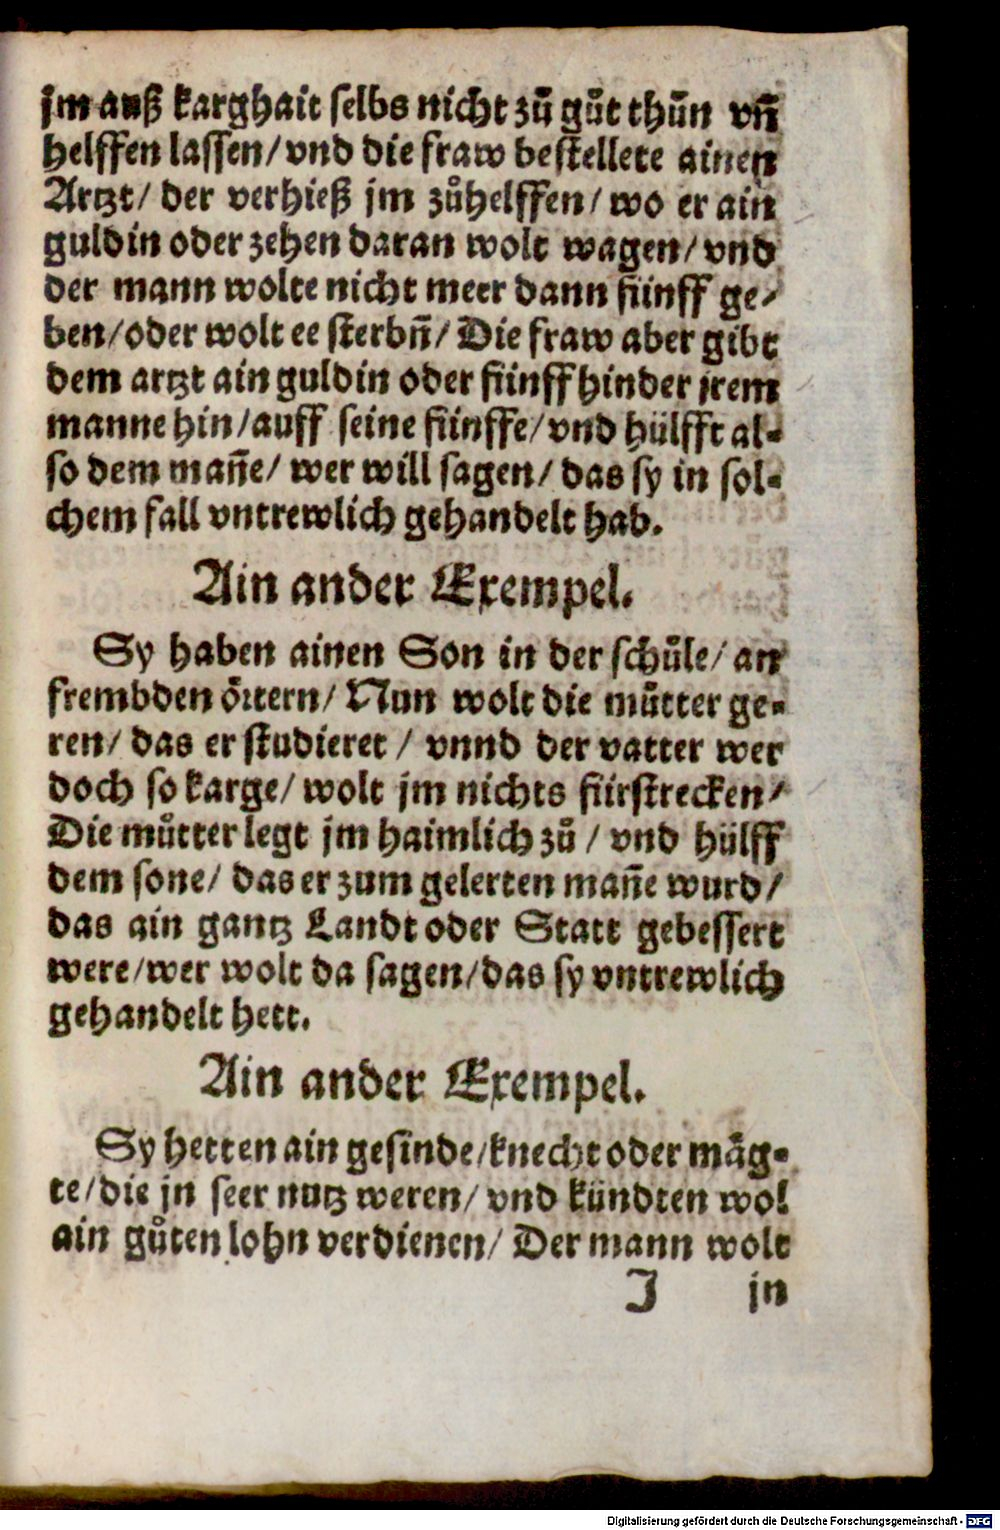 jm auß karghait selbs nicht zů gůt thůn vñ
helffen lassen/vnd die fraw bestellete ainen
Artzt/ der verhieß jm zůhelffen/ wo er ain
guldin oder zehen daran wolt wagen/ vnd
der mann wolte nicht meer dann fünff ge/
ben/oder wolt ee sterbñ/ Die fraw aber gibt
dem artzt ain guldin oder fünff hinder jrem
manne hin/auff seine fünffe/ vnd hülfft al-
so dem mañe/ wer will sagen/ das sy in sol-
chem fall vntrewlich gehandelt hab.
Ain ander Exempel.
Sy haben ainen Son in der schůle/ an
frembden örtern/ Nun wolt die můtter ge-
ren/ das er studieret / vnnd der vatter wer
doch so karge/ wolt jm nichts fürstrecken/
Die můtter legt jm haimlich zů / vnd hülff
dem sone/ das er zum gelerten mañe wurd/
das ain gantz Landt oder Statt gebessert
were/wer wolt da sagen/das sy vntrewlich
gehandelt hett.
Ain ander Exempel.
Sy hetten ain gesinde/knecht oder mäg-
te/die jn seer nutz weren/ vnd kündten wol
ain gůten lohn verdienen/ Der mann wolt
J jn
Digitalisierung gefördert durch die Deutsche Forschungsgemeinschaft - DFG